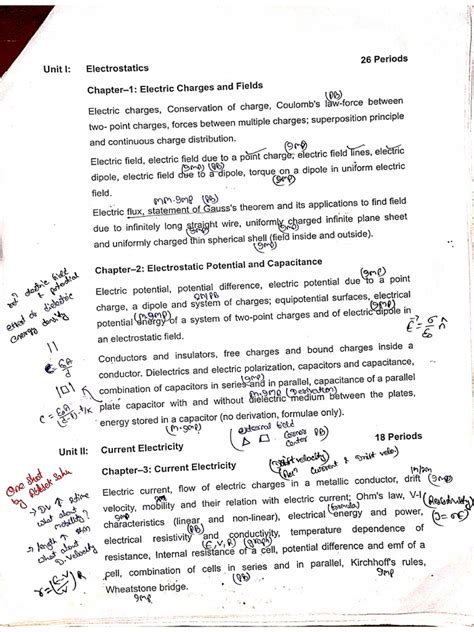 26 Periods
Unit I: Electrostatics
Chapter–1: Electric Charges and Fields
(PB)
Electric charges, Conservation of charge, Coulomb's law-force between
two- point charges, forces between multiple charges; superposition principle
and continuous charge distribution.
(Imp)
Electric field, electric field due to a point charge, electric field lines, electric
(PB) (Imp)
dipole, electric field due to a dipole, torque on a dipole in uniform electric
field.
m.m-Imp (PB)
Electric flux, statement of Gauss's theorem and its applications to find field
due to infinitely long straight wire, uniformly charged infinite plane sheet
(Imp)
and uniformly charged thin spherical shell (field inside and outside).
(Imp)
Chapter–2: Electrostatic Potential and Capacitance
relⁿ electric field
& potential
effect of dielectric
energy density
(Imp)
Electric potential, potential difference, electric potential due to a point
charge, a dipole and system of charges; equipotential surfaces, electrical
(m.Imp) (Imp)
potential energy of a system of two-point charges and of electric dipole in
an electrostatic field.
E = σ/ε₀ n̂
Conductors and insulators, free charges and bound charges inside a
conductor. Dielectrics and electric polarization, capacitors and capacitance,
(Imp)
combination of capacitors in series and in parallel, capacitance of a parallel
m.Imp (Derivation)
plate capacitor with and without dielectric medium between the plates,
energy stored in a capacitor (no derivation, formulae only).
(m.Imp)
external field
Unit II: Current Electricity
18 Periods
Chapter–3: Current Electricity
(drift velocity)
One shot
by Abhishek Sahu
Electric current, flow of electric charges in a metallic conductor, drift
Imp
velocity, mobility and their relation with electric current; Ohm's law, V-I
(Resistivity)
(formula)
characteristics (linear and non-linear), electrical energy and power,
electrical resistivity and conductivity, temperature dependence of
(E, V, R) (graph)
resistance, Internal resistance of a cell, potential difference and emf of a
cell, combination of cells in series and in parallel, Kirchhoff's rules,
(PB) Imp
Wheatstone bridge.
Imp
what about
mobility?
length ↑
what about
D. velocity